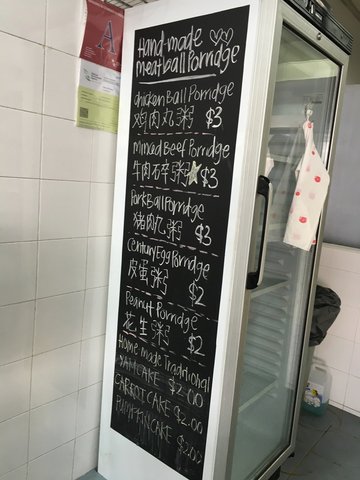 A
Hand-made
meatball Porridge
chicken Ball Porridge
鸡肉丸粥 $3
Minced Beef Porridge
牛肉碎粥 $3
Pork Ball Porridge
猪肉丸粥 $3
Century Egg Porridge
皮蛋粥 $2
Peanut Porridge
花生粥 $2
Home made Traditional
YAM CAKE $2.00
CARROT CAKE $2.00
PUMPKIN CAKE $2.00